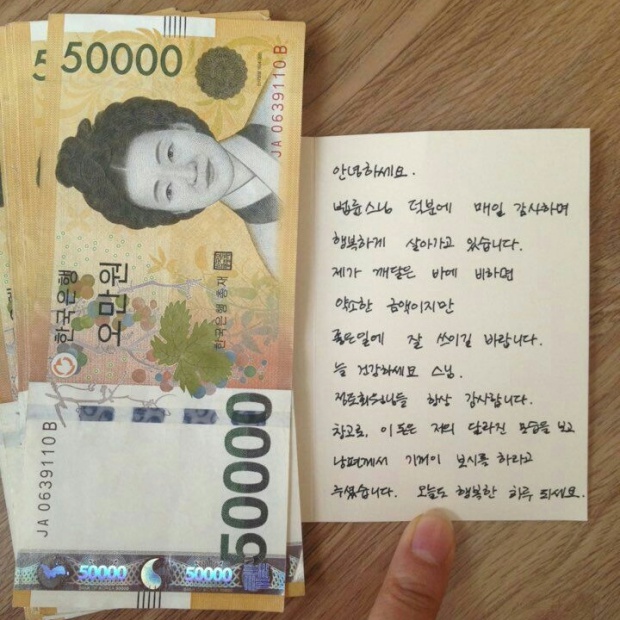 50000
JA 0639110 B
한국은행
오만원
한국은행 총재
JA 0639110 B
50000
50000
50000
안녕하세요.
법륜스님 덕분에 매일 감사하며
행복하게 살아가고 있습니다.
제가 깨달은 바에 비하면
약소한 금액이지만
좋은일에 잘 쓰이길 바랍니다.
늘 건강하세요 스님.
정토회수행님들 항상 감사합니다.
참고로, 이 돈은 저의 달라진 모습을 보고
남편께서 기꺼이 보시를 하라고
주셨습니다. 오늘도 행복한 하루 되세요.